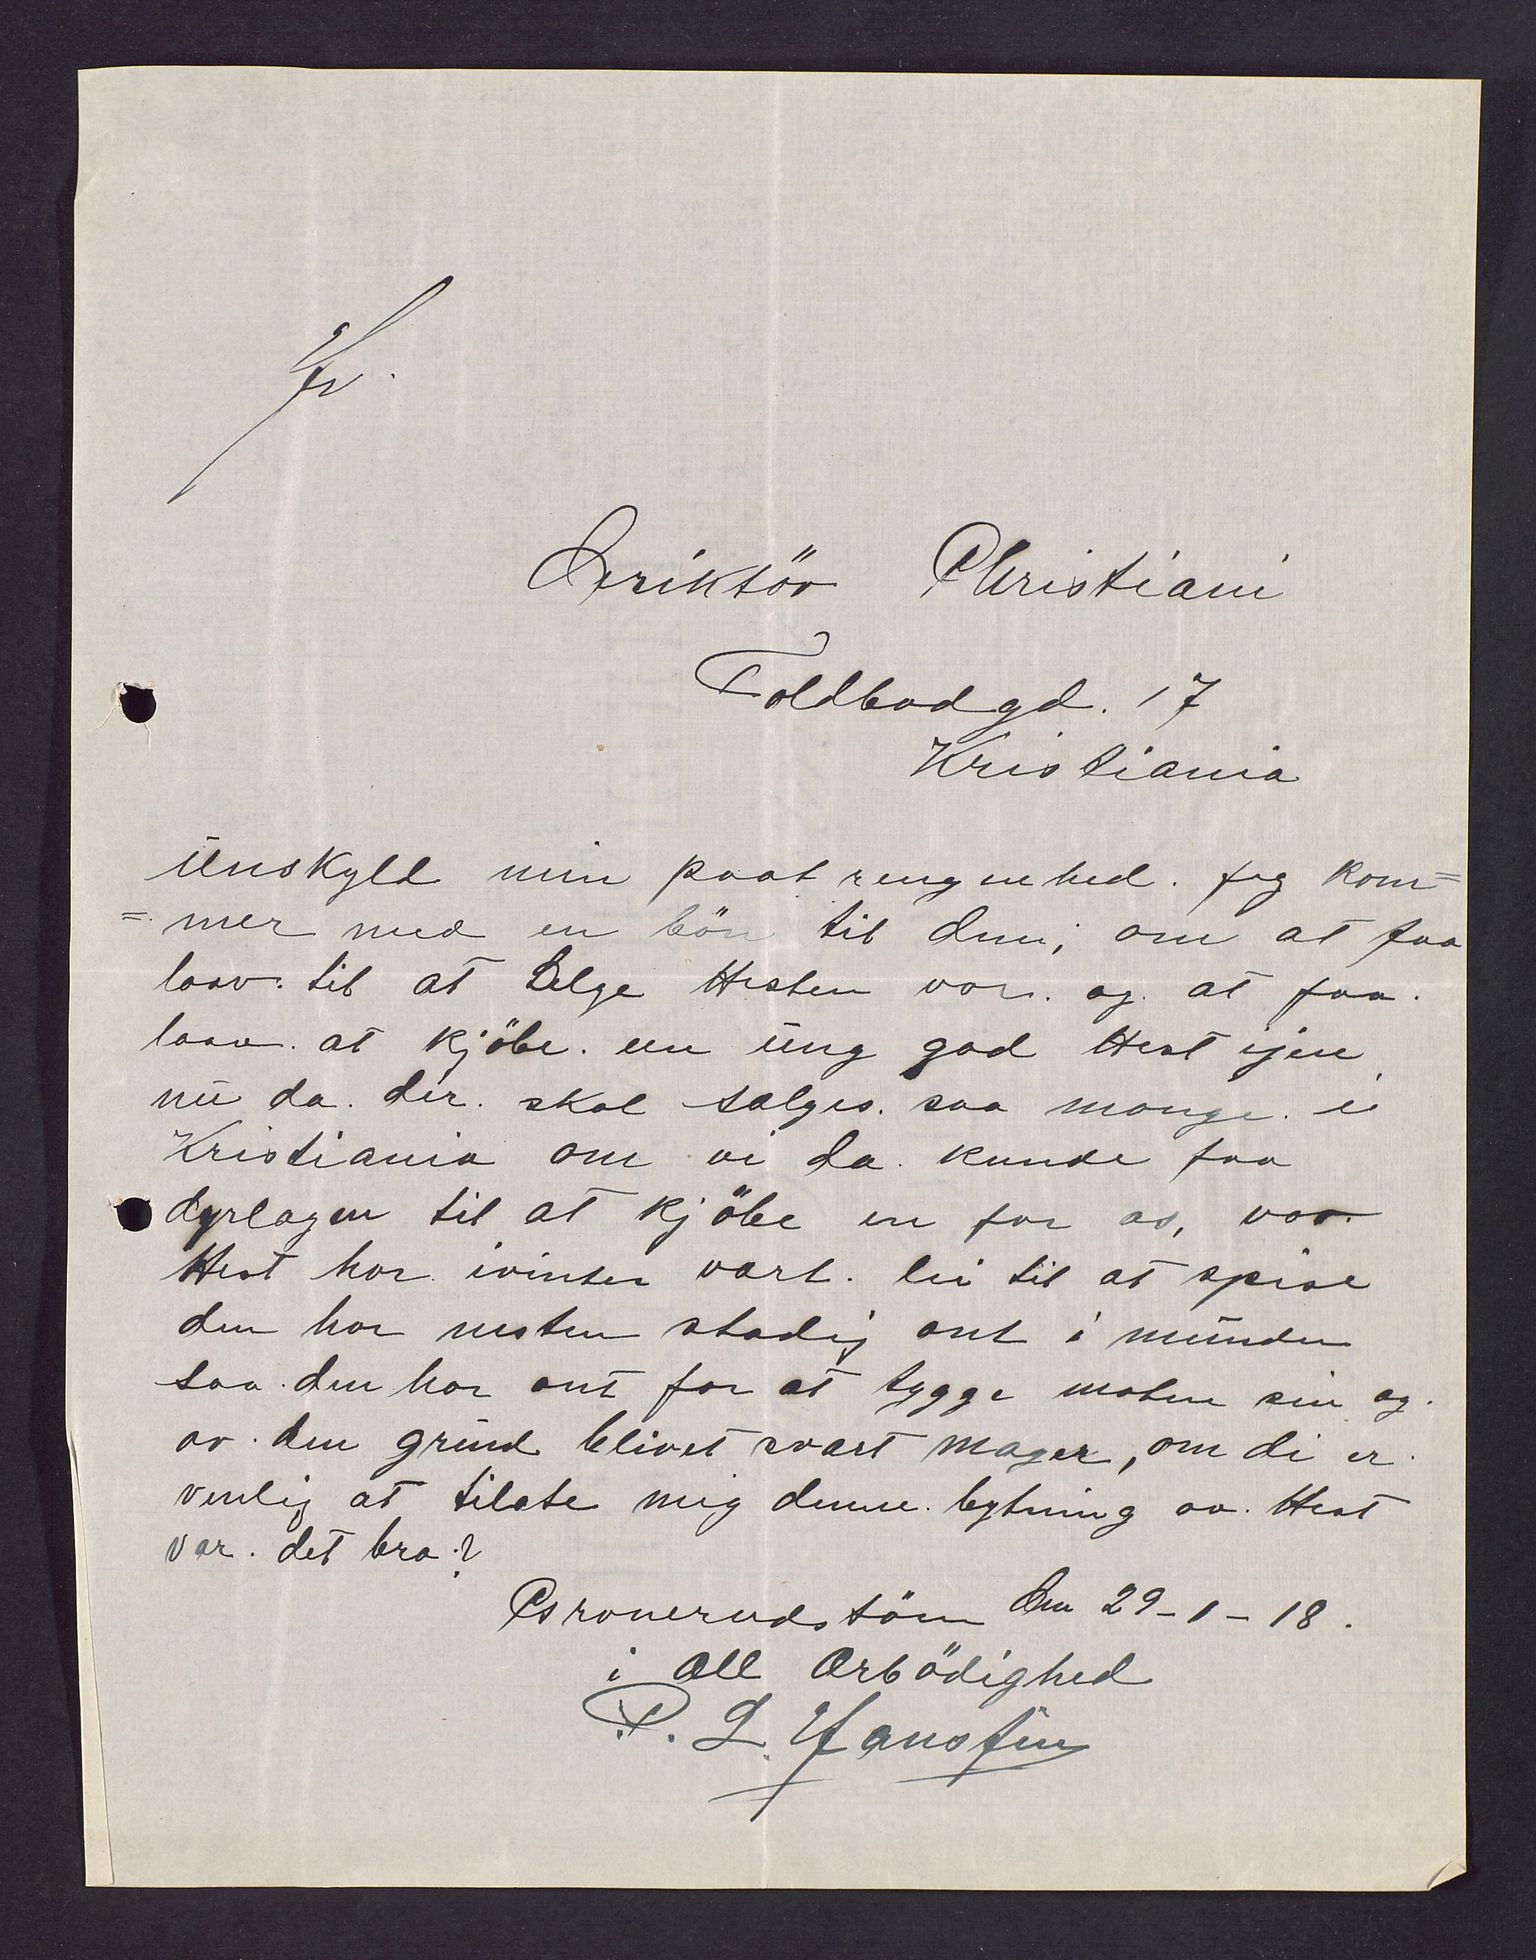 Hr.
Deriktör Christiani
Toldbodgd. 17
Kristiania
Unskyld min paatrengenhed. Jeg kom=
=mer med en bön til dem; om at faa
laav. til at selge Hesten vor. og. at faa.
laav. at kjöbe. en ung god Hest ijen
nu da. der. skal sælges. saa mange. i
Kristiania om vi da. kunde faa
dyrlagen til at kjöbe en for os, vor.
Hest har ivinter vært. lei til at spise
den har nesten stadig ont i munden
saa. den har ont for at tygge maten sin og.
av. den grund blivet svært mager, om di er.
venlig at tilate mig denne. bytning av. Hest
var. det bra.?
Den 29-1-18.
i All Ærbödighed
P. L. Hansen